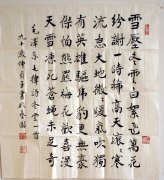 雪壓冬雲白絮飛萬花
紛謝一時稀高天滾滾寒
流急大地微微暖氣吹獨
有英雄驅虎豹更無豪
傑怕熊羆梅花歡喜漫
天雪凍死蒼蠅未足奇
毛澤東七律詩冬雲一首
九十歲